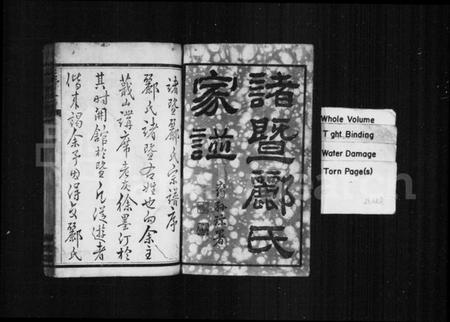 諸暨酈氏
家譜
諸暨酈氏宗譜序
酈氏諸暨右姓也向余主
蕺山講席老友徐墨汀於
其時開館於暨凡從遊者
偕來謁余予因得交酈氏
Whole Volume
Tight Binding
Water Damage
Torn Page(s)